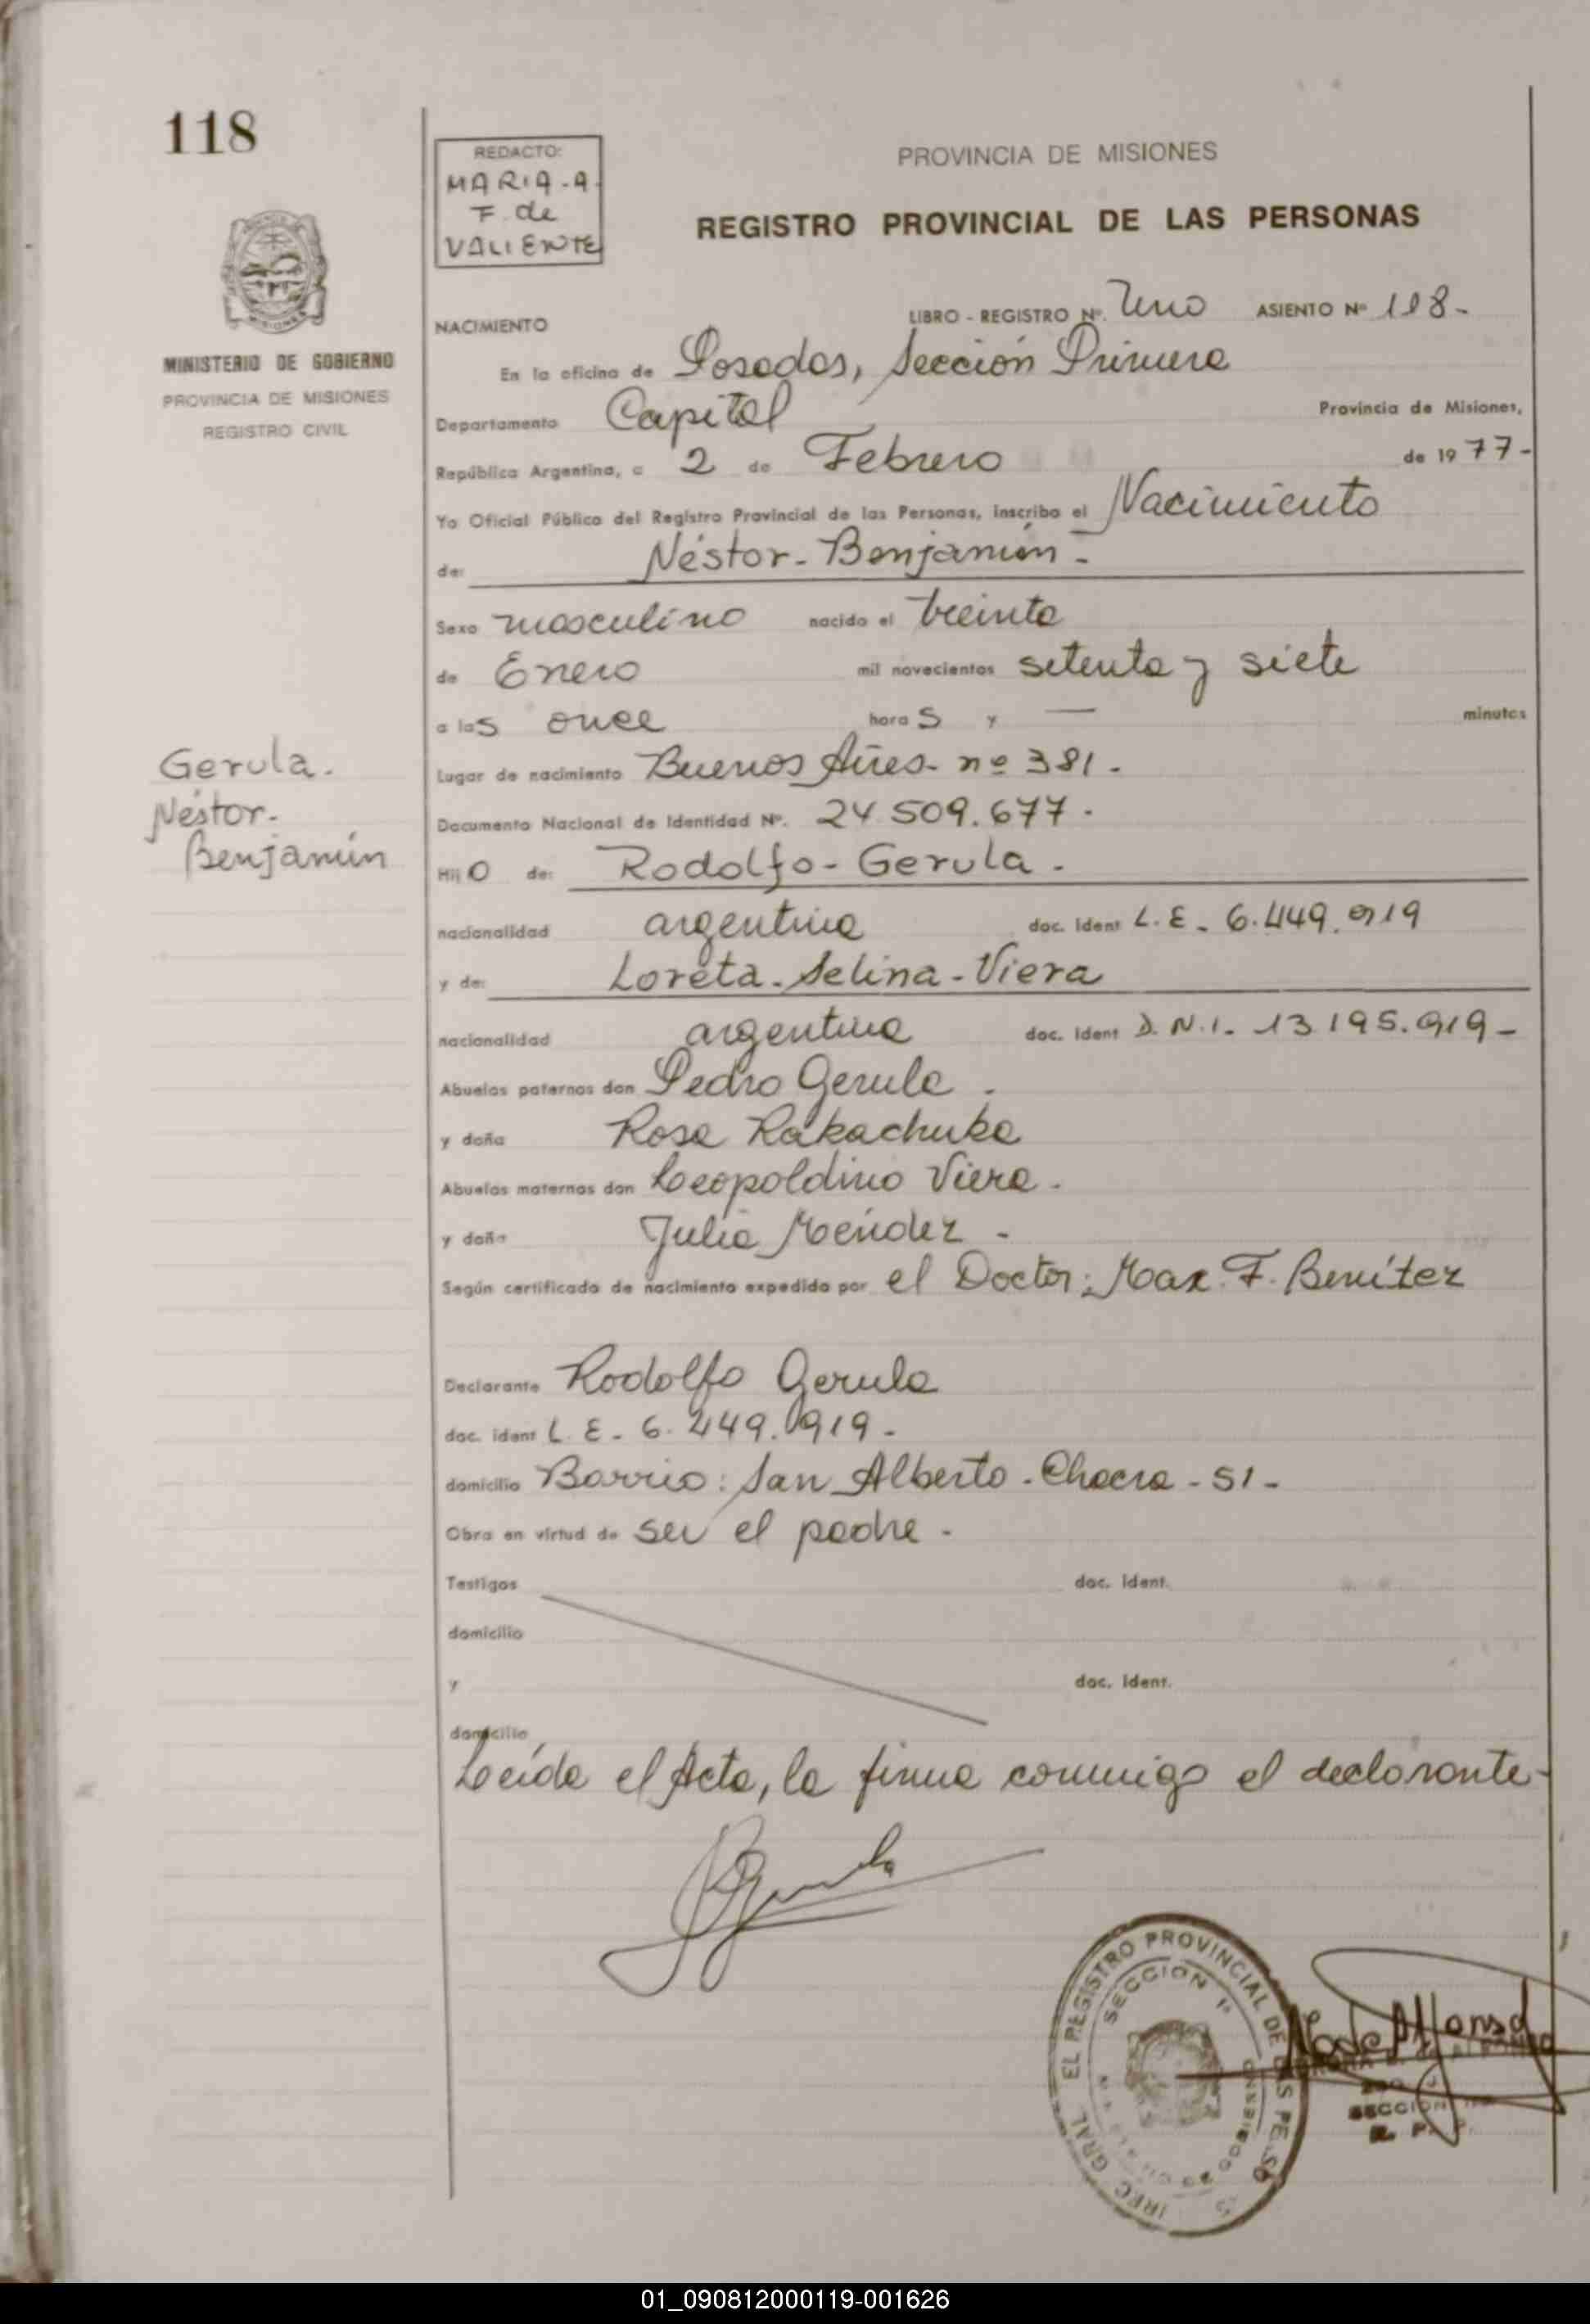 118
REDACTO:
MARIA-A.
F. de
VALIENTE
PROVINCIA DE MISIONES
REGISTRO PROVINCIAL DE LAS PERSONAS
MISIONES
MINISTERIO DE GOBIERNO
PROVINCIA DE MISIONES
REGISTRO CIVIL
NACIMIENTO LIBRO - REGISTRO Nº. Uno ASIENTO Nº 118.-
En la oficina de Posadas, Sección Primera
Departamento Capital Provincia de Misiones,
República Argentina, a 2 de Febrero de 19 77-
Yo Oficial Público del Registro Provincial de las Personas, inscribo el Nacimiento
de: Néstor-Benjamín-
Sexo masculino nacido el treinta
de Enero mil novecientos setenta y siete
a las once horas y — minutos
Lugar de nacimiento Buenos Aires- nº 381.
Documento Nacional de Identidad Nº. 24.509.677.
Gerula.
Néstor-
Benjamín
Hijo de: Rodolfo-Gerula.
nacionalidad argentina doc. Ident L.E- 6.449.919
y de: Loreta-Selina-Viera
nacionalidad argentina doc. Ident D.N.I- 13.195.919-
Abuelos paternos don Pedro Gerula.
y doña Rosa Rakachuka
Abuelos maternos don Leopoldino Viera.
y doña Julia Méndez-
Según certificado de nacimiento expedido por el Doctor: Max. F. Benítez
Declarante Rodolfo Gerula
doc. ident L.E- 6.449.919-
domicilio Barrio: San Alberto-Chacra-51-
Obra en virtud de ser el padre-
Testigos doc. Ident.
domicilio
y doc. Ident.
domicilio
Leída el Acta, la firma conmigo el declarante-
EL REGISTRO PROVINCIAL DE LAS PERSO
SECCION 1ª
GOBIERNO
GRAL
SECCION
R. P. P.
01_090812000119-001626